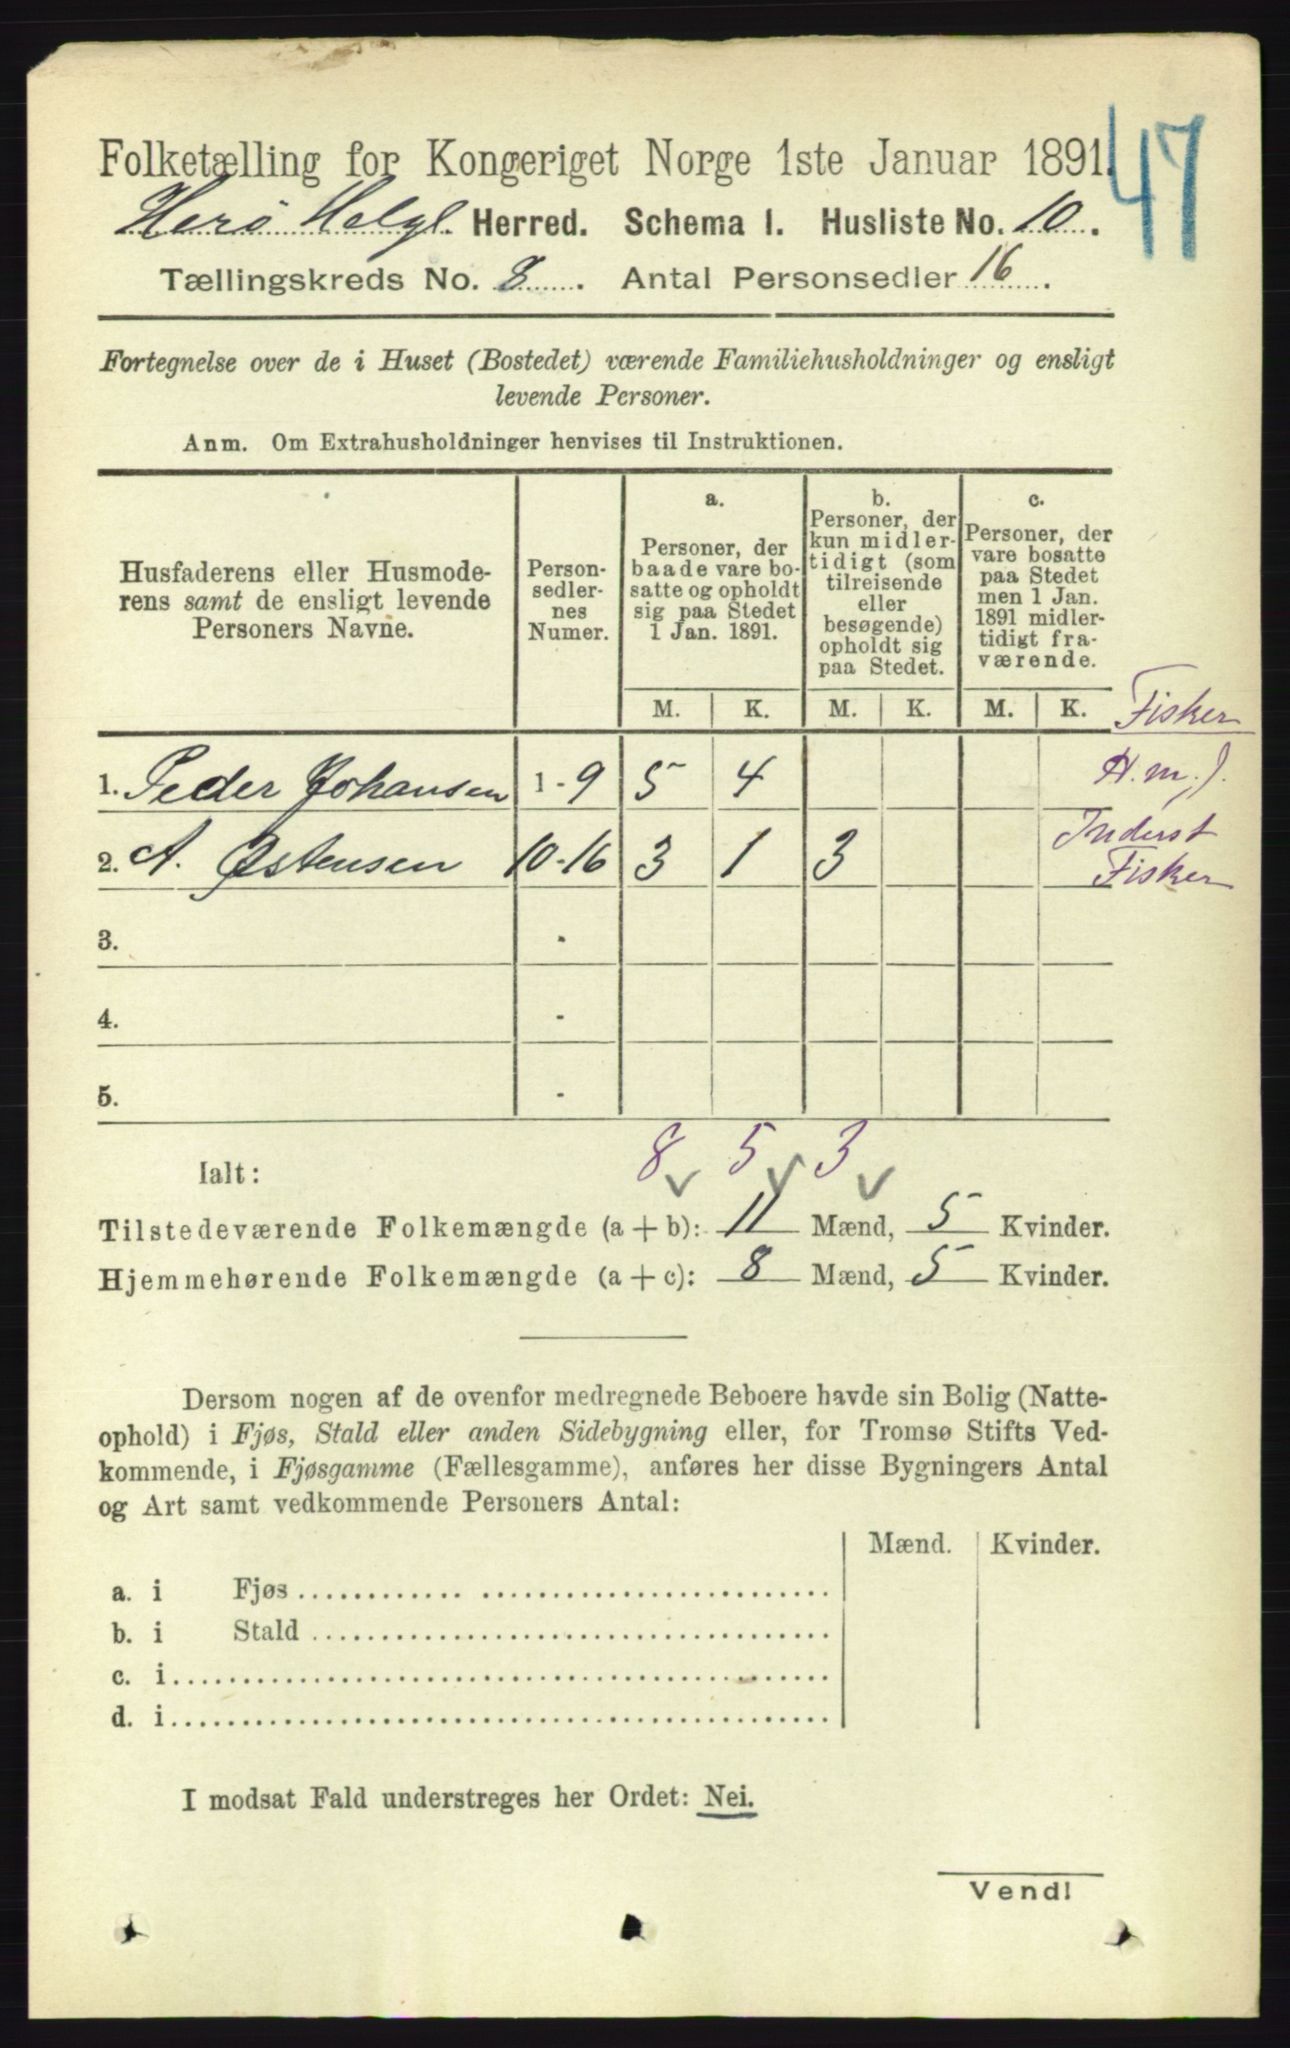 47
Folketælling for Kongeriget Norge 1ste Januar 1891.
Herø Helgl. Herred. Schema I. Husliste No. 10.
Tællingskreds No. 8. Antal Personsedler 16.
Fortegnelse over de i Huset (Bostedet) værende Familiehusholdninger og ensligt
levende Personer.
Anm. Om Extrahusholdninger henvises til Instruktionen.
Husfaderens eller Husmode-
rens samt de ensligt levende
Personers Navne.
Person-
sedler-
nes
Numer.
a.
Personer, der
baade vare bo-
satte og opholdt
sig paa Stedet
1 Jan. 1891.
b.
Personer, der
kun midler-
tidigt (som
tilreisende
eller
besøgende)
opholdt sig
paa Stedet.
c.
Personer, der
vare bosatte
paa Stedet
men 1 Jan.
1891 midler-
tidigt fra-
værende.
M. K. M. K. M. K.
Fisker
1. Peder Johansen 1-9 5 4 H.m.J.
2. A. Østensen 10-16 3 1 3 Inderst
Fisker
3. -
4. -
5. -
8 5 3
Ialt:
Tilstedeværende Folkemængde (a + b): 11 Mænd, 5 Kvinder.
Hjemmehørende Folkemængde (a + c): 8 Mænd, 5 Kvinder.
Dersom nogen af de ovenfor medregnede Beboere havde sin Bolig (Natte-
ophold) i Fjøs, Stald eller anden Sidebygning eller, for Tromsø Stifts Ved-
kommende, i Fjøsgamme (Fællesgamme), anføres her disse Bygningers Antal
og Art samt vedkommende Personers Antal:
Mænd. Kvinder.
a. i Fjøs
b. i Stald
c. i
d. i
I modsat Fald understreges her Ordet: Nei.
Vend!